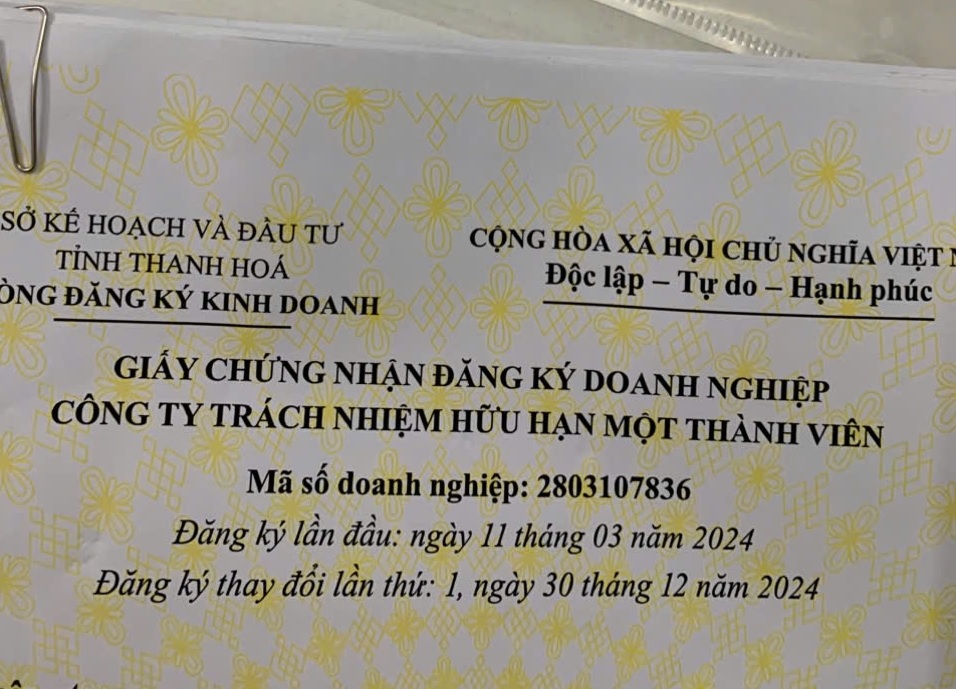 SỞ KẾ HOẠCH VÀ ĐẦU TƯ
TỈNH THANH HOÁ
ĐĂNG KÝ KINH DOANH
CỘNG HÒA XÃ HỘI CHỦ NGHĨA VIỆT
Độc lập – Tự do – Hạnh phúc
GIẤY CHỨNG NHẬN ĐĂNG KÝ DOANH NGHIỆP
CÔNG TY TRÁCH NHIỆM HỮU HẠN MỘT THÀNH VIÊN
Mã số doanh nghiệp: 2803107836
Đăng ký lần đầu: ngày 11 tháng 03 năm 2024
Đăng ký thay đổi lần thứ: 1, ngày 30 tháng 12 năm 2024